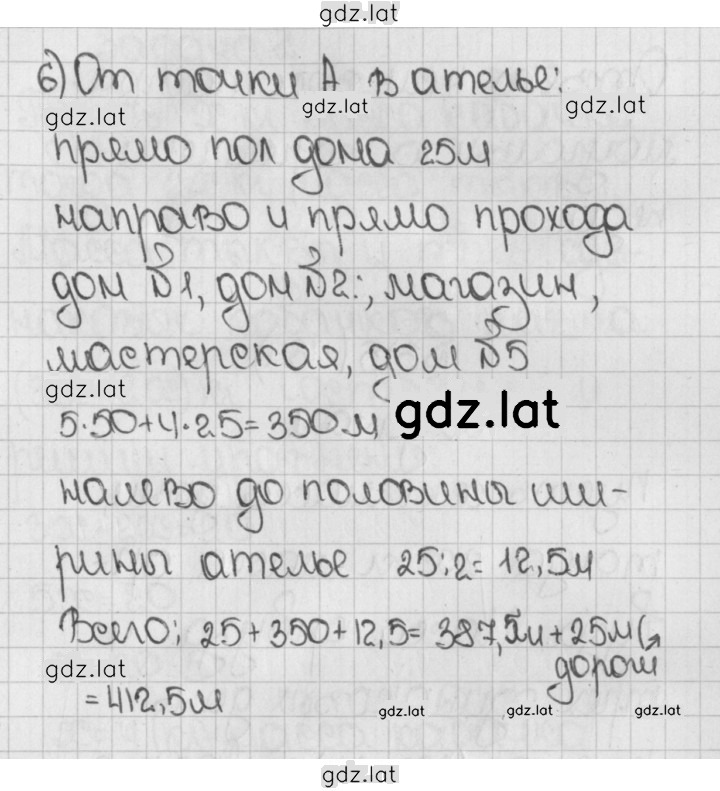 gdz.lat
б) От точки А в ателье:
gdz.lat gdz.lat gdz.lat
прямо пол дома 25м
направо и прямо прохода
дом №1, дом №2:, магазин,
мастерская, дом №5
gdz.lat
5·50+4·25=350м gdz.lat
налево до половины ши-
рины ателье 25:2= 12,5м
Всего: 25+350+12,5= 387,5м+25м(
gdz.lat дороги
=412,5м
gdz.lat gdz.lat gdz.lat
gdz.lat